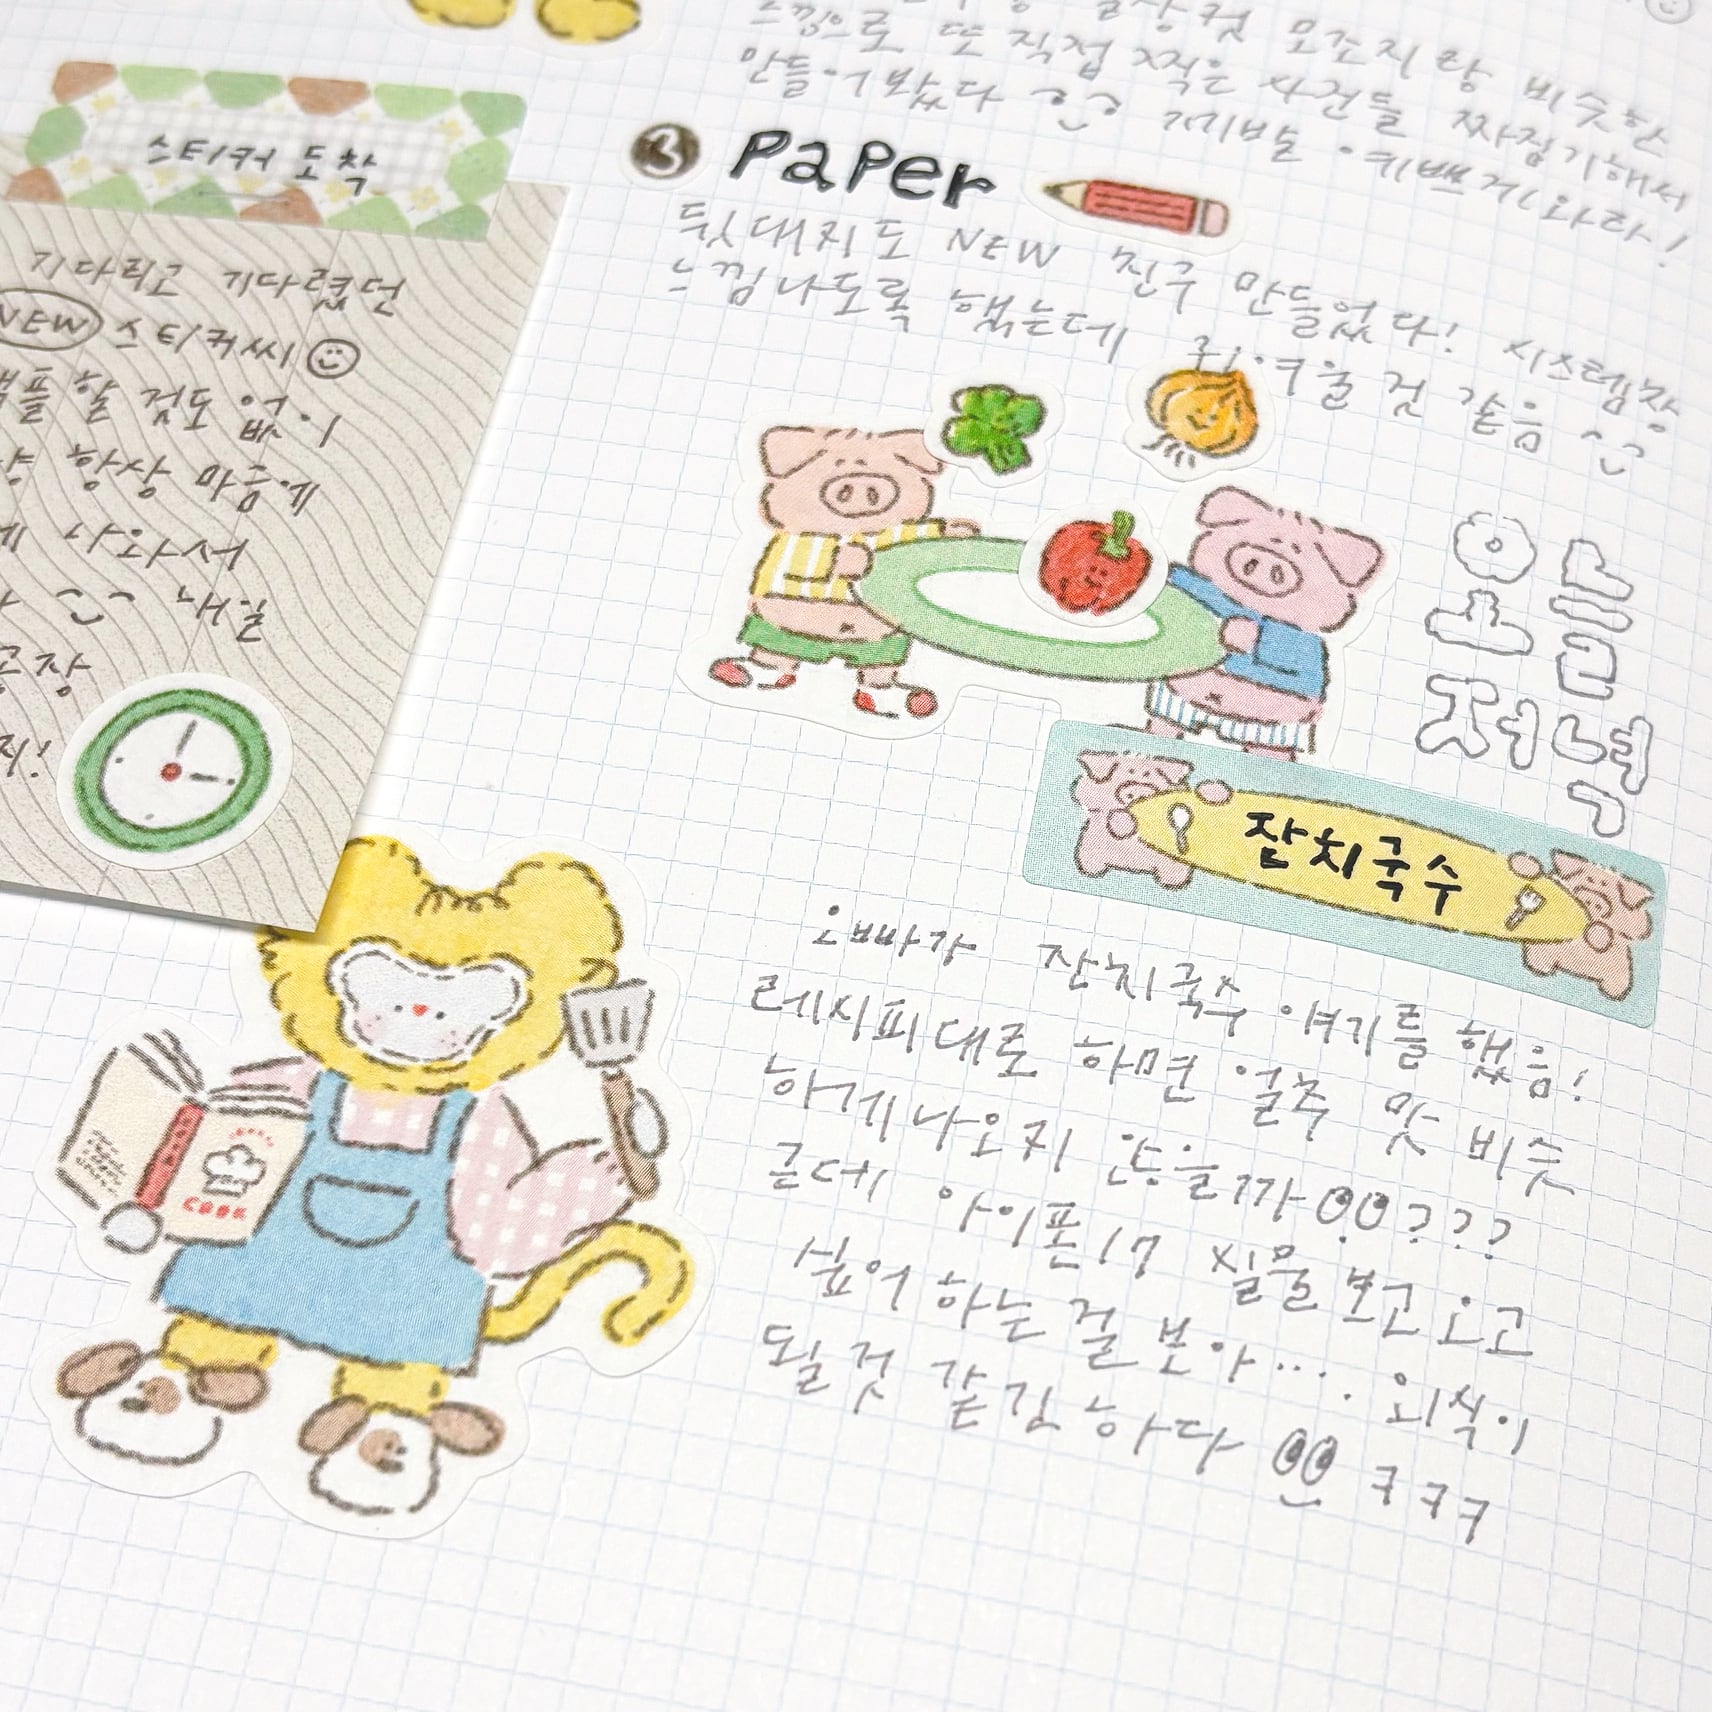 스티커 도착
기다리고 기다렸던
NEW 스티커씨
할 것도 없이
항상 마음에
나와서
내일
공장
지!
느낌으로 또 직접 찍은 사진들 짜집기해서
만들어봤다 제발 예쁘게 나와라!
3 Paper
뒷대지도 NEW 친구 만들었다! 시스템창
느낌나도록 했는데 귀여울 것 같음
오늘
의
저녁
잔치국수
오빠가 잔치국수 얘기를 했음!
레시피대로 하면 얼추 맛 비슷
하게 나오지 않을까???
근데 아이폰17 실물 보고 오고
싶어 하는 걸 보아.... 외식이
될 것 같긴 하다 ㅋㅋㅋ
COOK